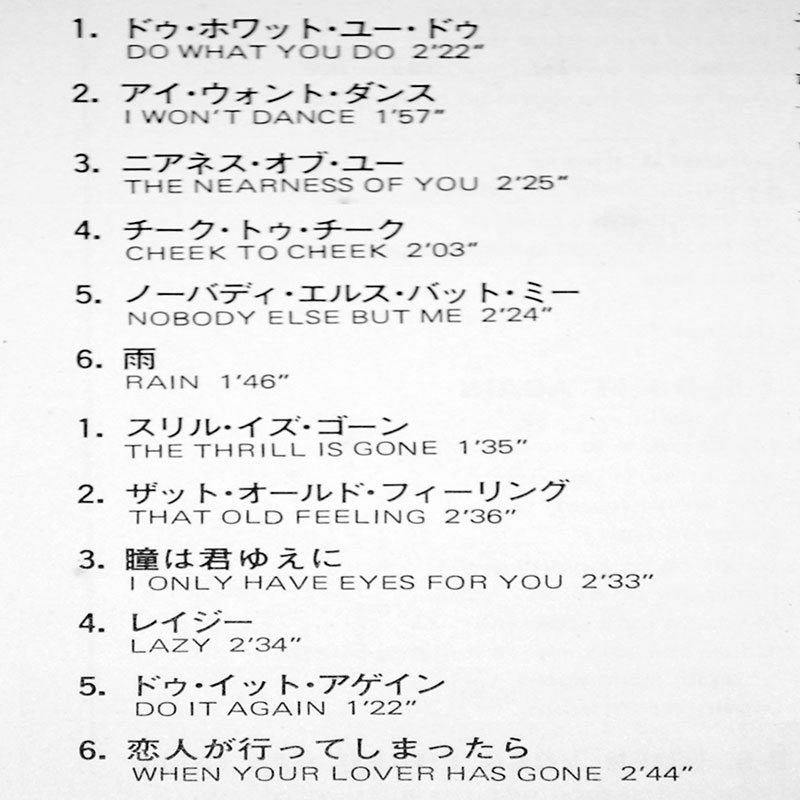 1. ドゥ・ホワット・ユー・ドゥ
DO WHAT YOU DO 2′22″
2. アイ・ウォント・ダンス
I WON'T DANCE 1′57″
3. ニアネス・オブ・ユー
THE NEARNESS OF YOU 2′25″
4. チーク・トゥ・チーク
CHEEK TO CHEEK 2′03″
5. ノーバディ・エルス・バット・ミー
NOBODY ELSE BUT ME 2′24″
6. 雨
RAIN 1′46″
1. スリル・イズ・ゴーン
THE THRILL IS GONE 1′35″
2. ザット・オールド・フィーリング
THAT OLD FEELING 2′36″
3. 瞳は君ゆえに
I ONLY HAVE EYES FOR YOU 2′33″
4. レイジー
LAZY 2′34″
5. ドゥ・イット・アゲイン
DO IT AGAIN 1′22″
6. 恋人が行ってしまったら
WHEN YOUR LOVER HAS GONE 2′44″